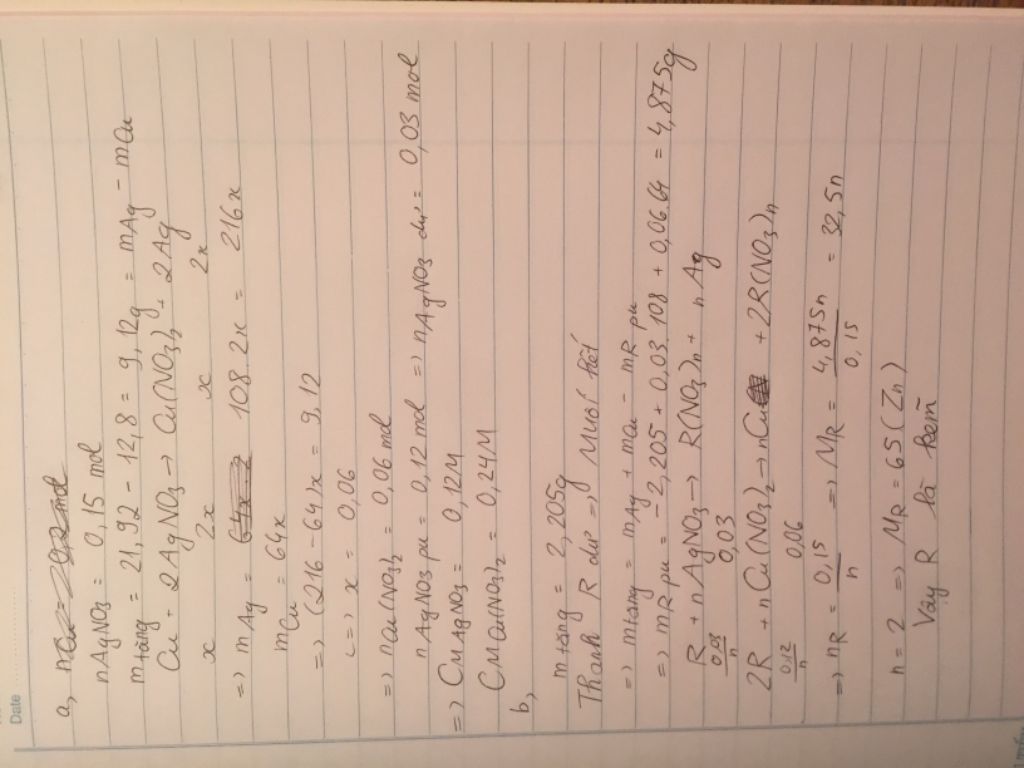 Date
a,
nAgNO3 = 0,15 mol
mtăng = 21,92 - 12,8 = 9,12g = mAg - mCu
Cu + 2AgNO3 → Cu(NO3)2 + 2Ag
x 2x x 2x
=) mAg = 108.2x = 216x
mCu = 64x
=) (216 - 64)x = 9,12
<=) x = 0,06
=) nCu(NO3)2 = 0,06 mol
nAgNO3 pu = 0,12 mol =) nAgNO3 dư = 0,03 mol
=) CMAgNO3 = 0,12M
CMCu(NO3)2 = 0,24M
b,
mtăng = 2,205g
Thanh R dư =) Muối hết
=) mtăng = mAg + mCu - mR pu
=) mR pu = -2,205 + 0,03.108 + 0,06.64 = 4,875g
R + nAgNO3 → R(NO3)n + nAg
0,03/n 0,03
2R + nCu(NO3)2 → nCu + 2R(NO3)n
0,12/n 0,06
=) nR = 0,15/n =) MR = 4,875n/0,15 = 32,5n
n = 2 =) MR = 65 (Zn)
Vậy R là kẽm